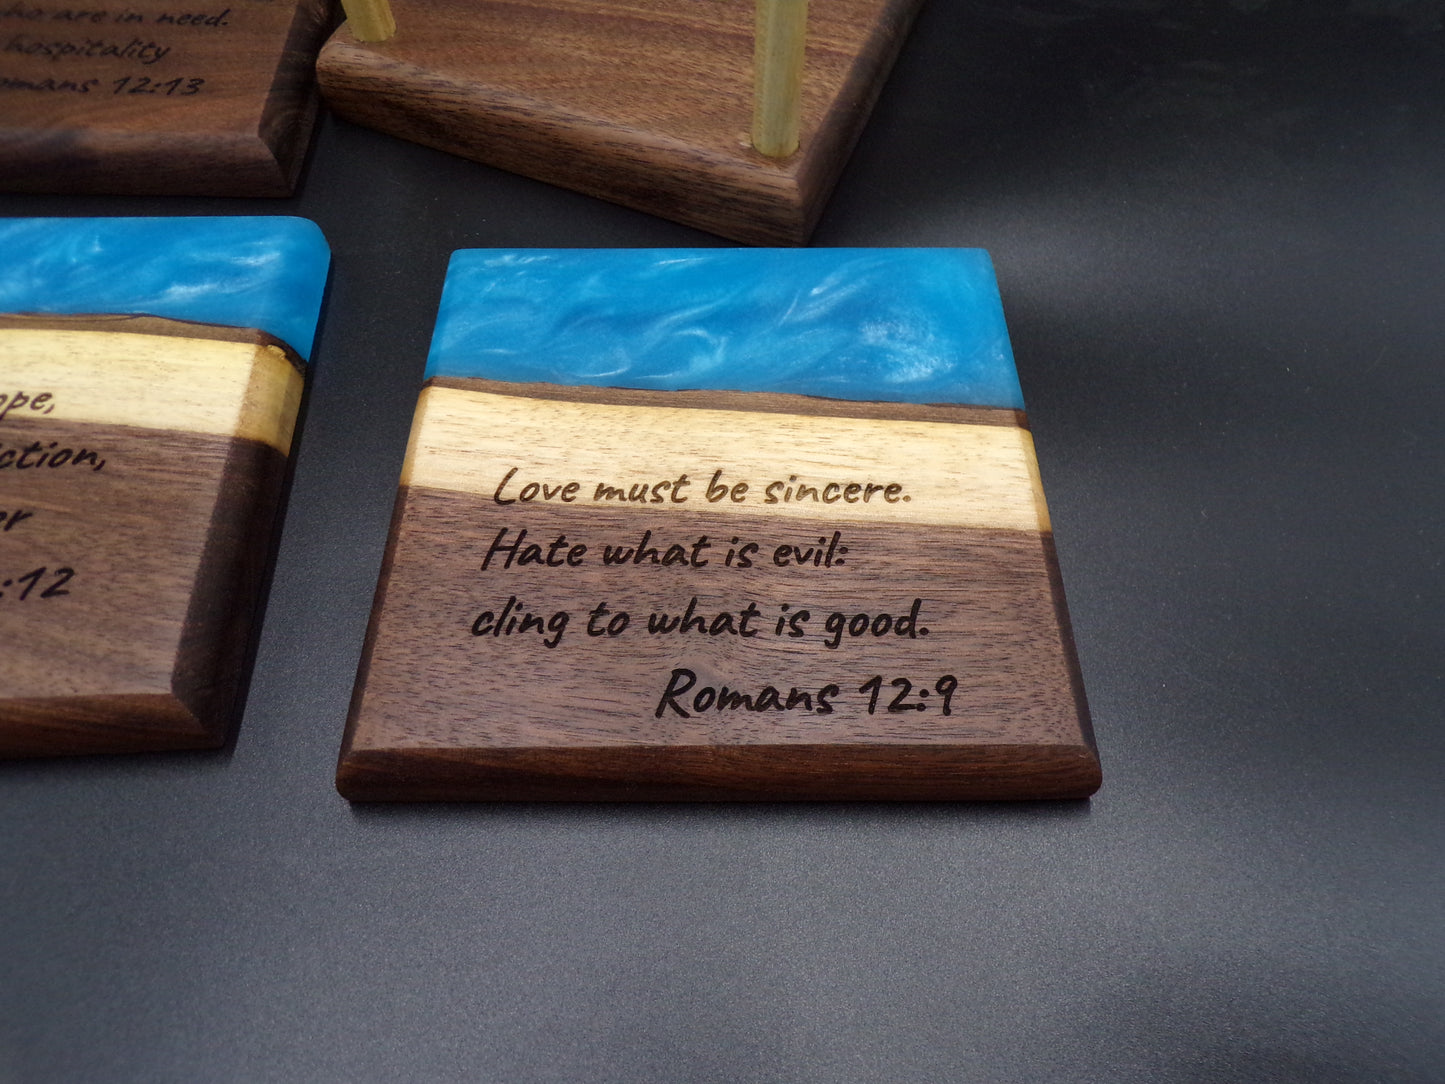 who are in need.
hospitality
Romans 12:13
Love must be sincere.
Hate what is evil:
cling to what is good.
Romans 12:9
:12